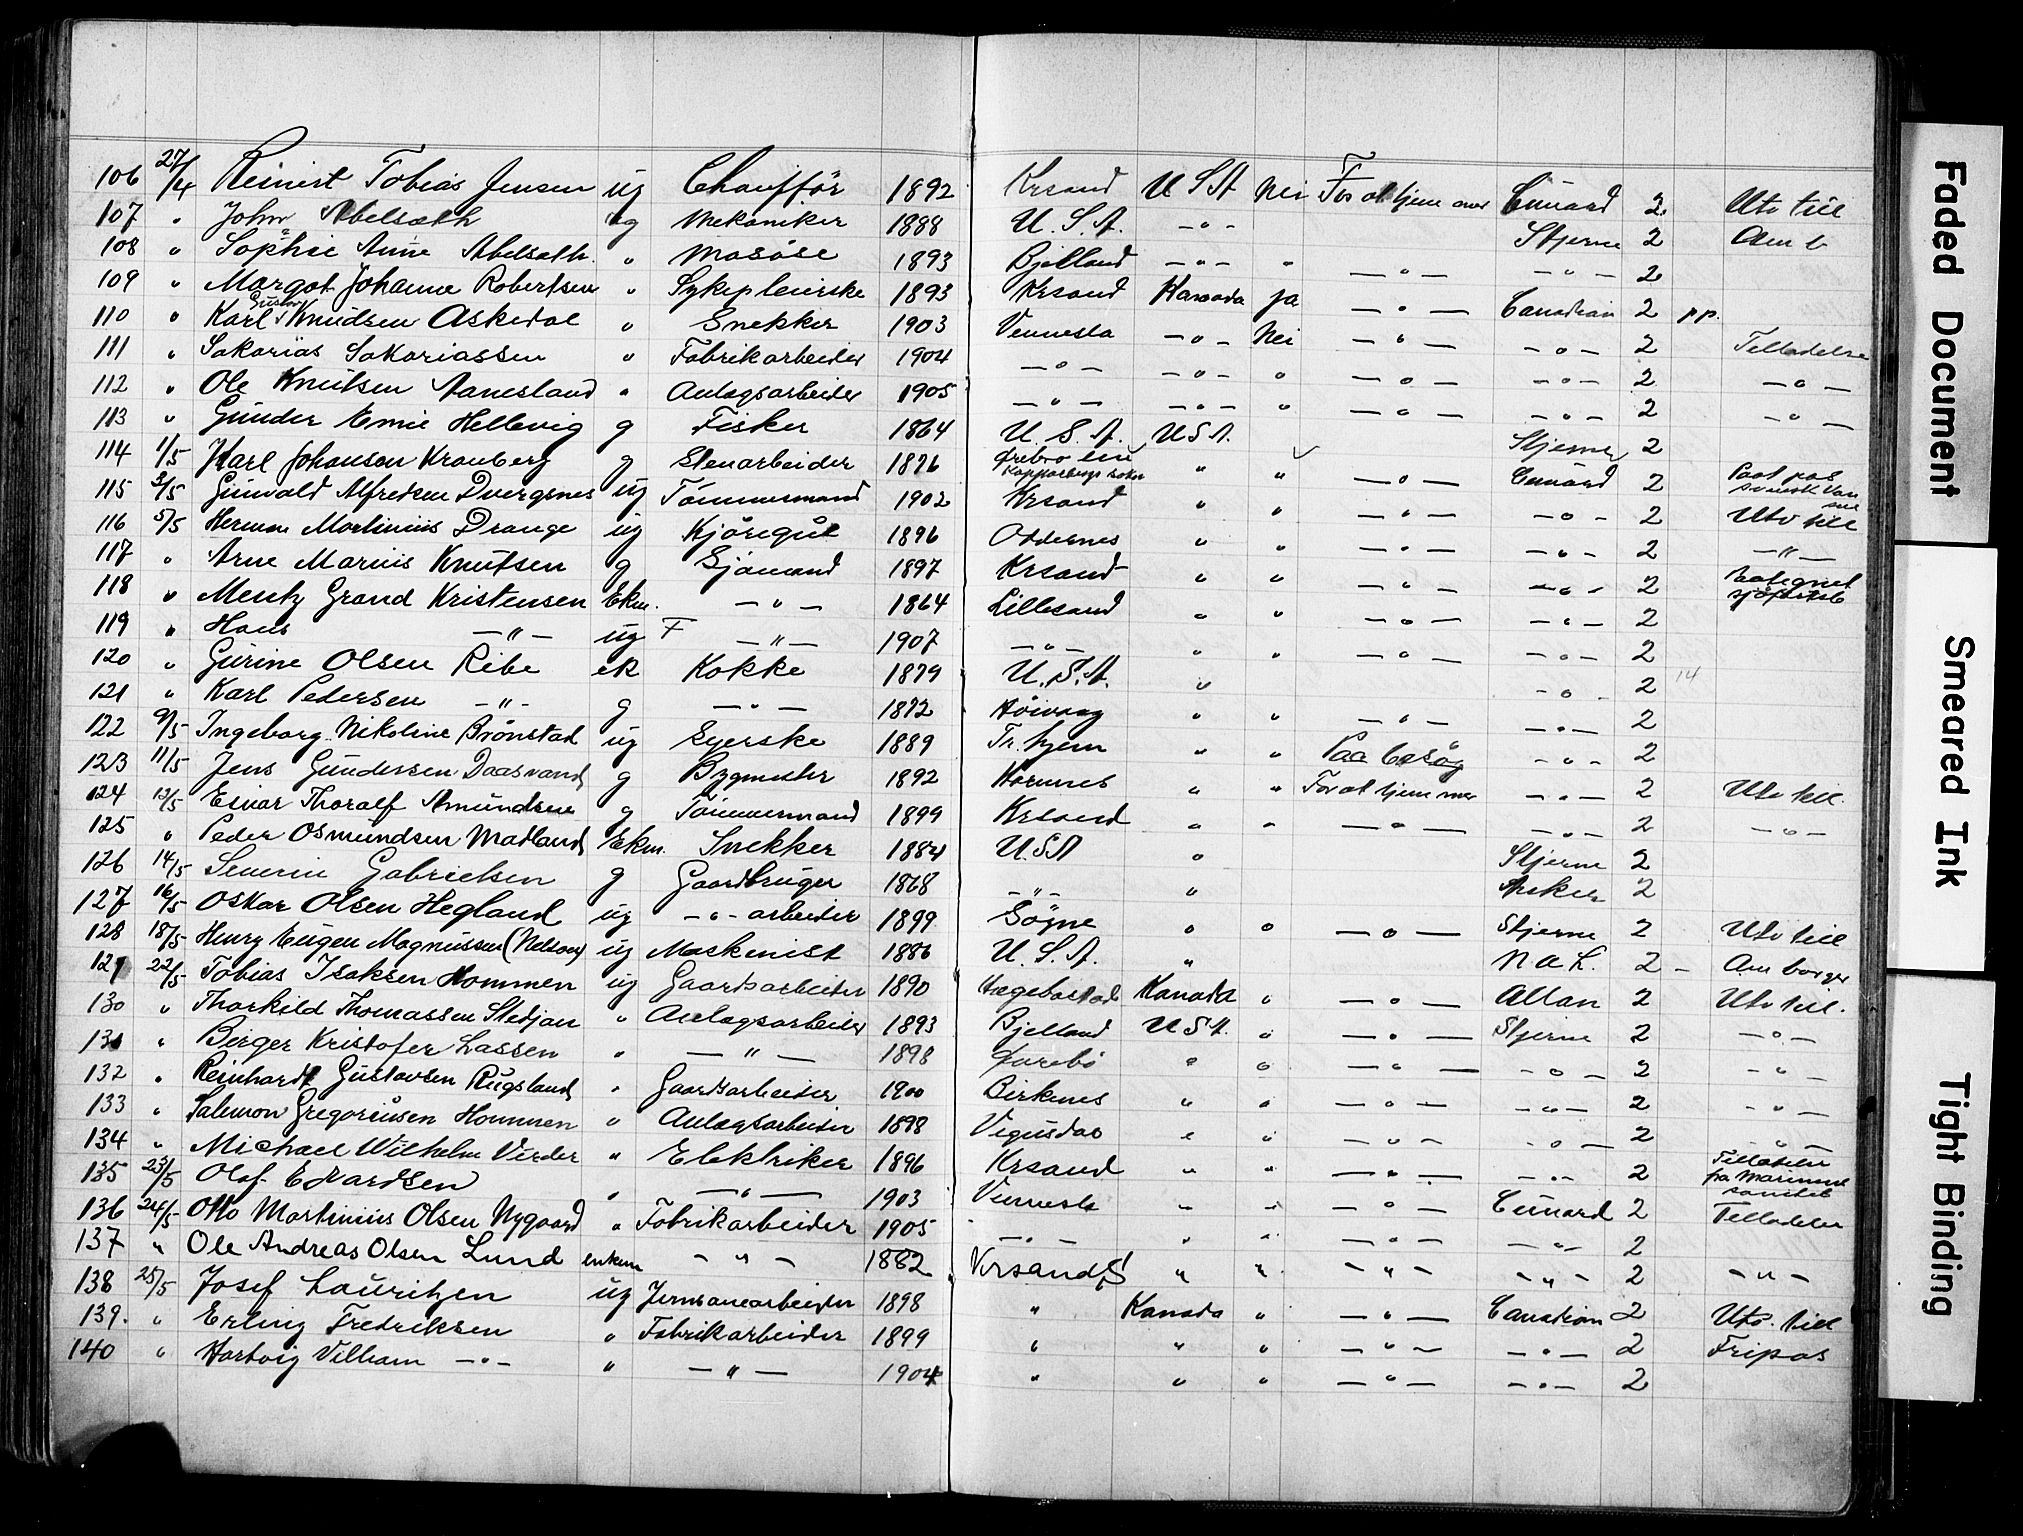 106 27/4 Reinert Tobias Jensen ug Chauffør 1892 Krsand U S A Nei For at tjene mer Cunard 2 Utv till
107 " John Abelseth ug Mekaniker 1888 U. S. A. -"- Stjerne 2 Am b
108 " Sophie Anne Abelseth " Masøse 1893 Bjelland -"- " -"- -"- 2
109 " Margot Johanne Robertsen " Sykepleierske 1893 Krsand Kanada ja -"- Canadian 2 pp.
110 " Karl Gustav Knudsen Askedal " Snekker 1903 Vennesla -"- Nei -"- -"- 2 Tilladelse
111 " Sakarias Sakariassen " Fabrikarbeider 1904 -"- -"- " -"- -"- 2 -"-
112 " Ole Knutsen Aanesland " Anlægsarbeider 1905 -"- -"- " -"- -"- 2 -"-
113 " Gunder Emie Hellevig g Fisker 1864 U. S. A. U S A. Stjerne 2
114 1/5 Karl Johansen Kranberg g Stenarbeider 1876 Ørebro len Kopparbergs sokn " " -"- Cunard 2 Paat pas svensk kon sul
115 3/5 Gunvald Alfredsen Dvergsnes ug Tømmermand 1902 Krsand " " -"- -"- 2 Utv till
116 5/5 Herman Martinius Drange ug Kjøregut 1896 Oddernes " " -"- -"- 2 -"-
117 " Arne Marius Knutsen g Sjømand 1897 Krsand " " -"- -"- 2 Paategnet sjøfartsb
118 " Mentz Grand Kristensen Ekm. -"- 1864 Lillesand " " -"- -"- 2
119 " Hans -"- ug F -"- 1907 -"- " " -"- -"- 2
120 " Gurine Olsen Ribe ek Kokke 1879 U. S. A. " -"- 2 14
121 " Karl Pedersen -"- g -"- 1872 Høivaag " " -"- -"- 2
122 9/5 Ingeborg Nikoline Brønstad ug Eyerske 1889 Tr. hjem " " Paa besøg -"- 2
123 11/5 Jens Gundersen Daasvand g Bygmester 1892 Hornnes " " For at tjene mer -"- 2 Utv till.
124 12/5 Einar Thoralf Amundsen g Tømmermand 1899 Krsand " " -"- -"- 2 -"-
125 " Peder Osmundsen Madland Ekm. Snekker 1884 U.S.A " Stjerne 2
126 14/5 Severin Gabrielsen g Gaardbruger 1868 -"- " Anker 2
127 16/5 Oskar Olsen Hegland ug -"- arbeider 1899 Søgne " " -"- Stjerne 2 Utv till
128 18/5 Henry Eugen Magnussen (Nelson) ug Maskinist 1886 U. S. A. " N A L. 2 - Am borger
129 22/5 Tobias Isaksen Hommen ug Gaardsarbeider 1890 Hægebostad Kanada " -"- Allan 2 Utv till.
130 " Thorkild Thomassen Stedjan " Anlægsarbeider 1893 Bjelland U S A. " -"- Stjerne 2 -"-
131 " Berger Kristofer Lassen " -"- 1898 Øvrebø " " -"- -"- 2 -"-
132 " Reinhardt Gustavsen Rugsland " Gaardsarbeider 1900 Birkenes " " -"- -"- 2 -"-
133 " Salemon Gregoriusen Hommen " Anlægsarbeider 1898 Vegusdal " " -"- -"- 2 -"-
134 " Michael Wilhelm Virder " Elektriker 1896 Krsand " " -"- -"- 2 Tilladelse fra Marinens sanitet
135 23/5 Olaf Edvardsen " -"- 1903 Vennesla " " -"- Cunard 2 Tilladelse
136 24/5 Otto Martinius Olsen Nygaard " Fabrikarbeider 1905 -"- " " -"- -"- 2
137 " Ole Andreas Olsen Lund enkem -"- 1882 Krsand S " " -"- -"- 2 -"-
138 25/5 Josef Lauritzen ug Jernbanearbeider 1898 " Kanada " -"- Canadian 2 Utv. till
139. " Erling Fredriksen " Fabrikarbeider 1899 " " " -"- -"- 2 Fripas
140 " Hartvig Vilham -"- " -"- 1904 " " " -"- -"- 2
Faded Document
Smeared Ink
Tight Binding